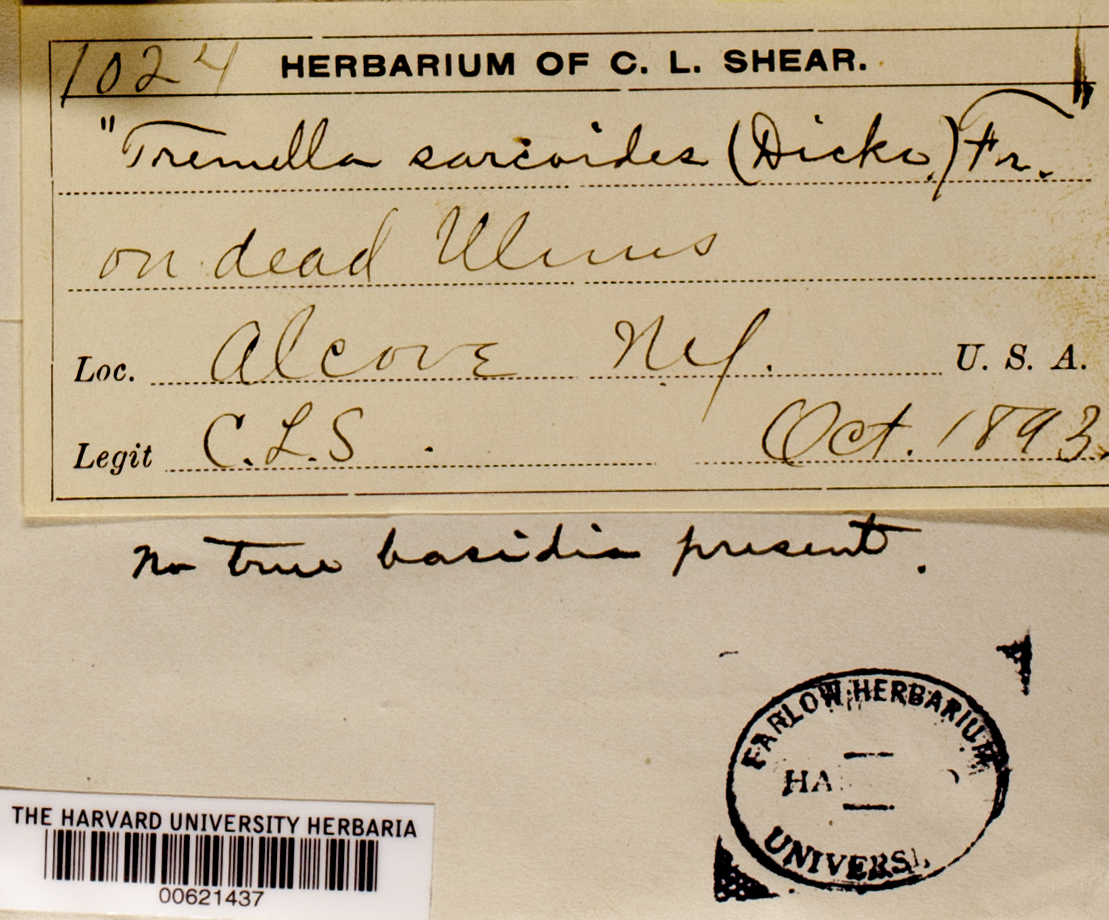 1024 HERBARIUM OF C. L. SHEAR.
"Tremella sarcoides (Dicks.) Fr."
on dead Ulmus
Loc. Alcove N.Y. U. S. A.
Legit C.L.S. Oct. 1893.
no true basidia present.
FARLOW HERBARIUM
HA
UNIVERSI
THE HARVARD UNIVERSITY HERBARIA
00621437